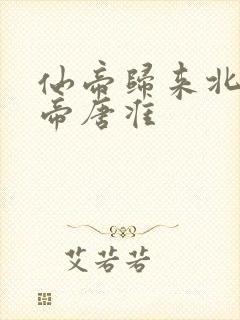 仙帝歸来北
帝唐淮
艾若若